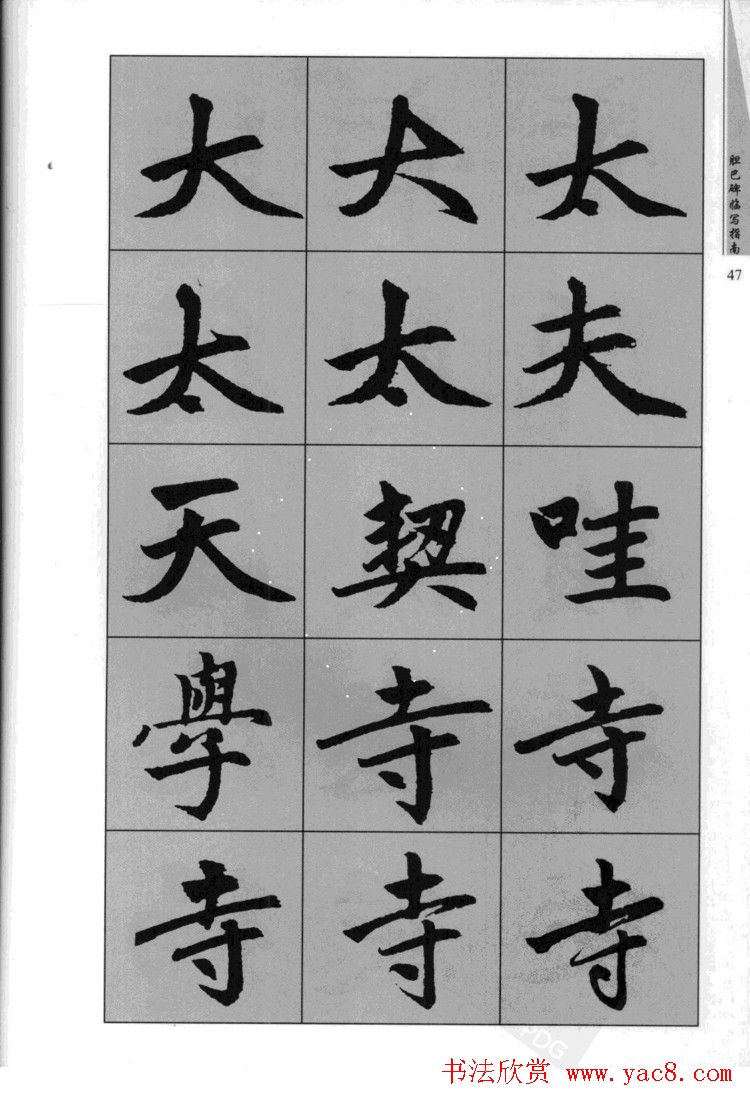 大大太
太太夫
天契哇
學寺寺
寺寺寺
胆巴碑临写指南
47
PDG
书法欣赏 www.yac8.com